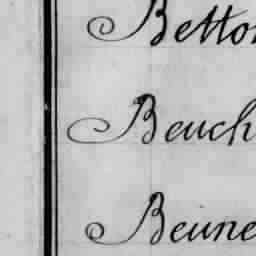 Betton
Beuch
Beune